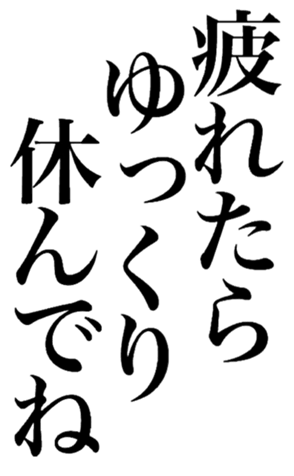 疲れたら
ゆっくり
休んでね